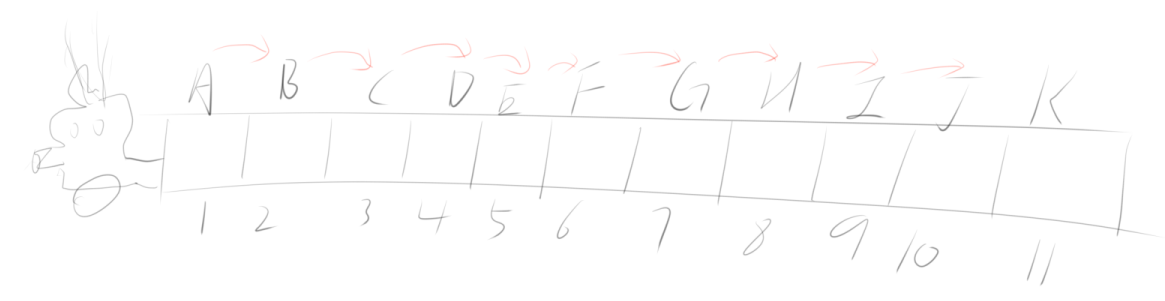 A B C D E F G H I J K
1 2 3 4 5 6 7 8 9 10 11